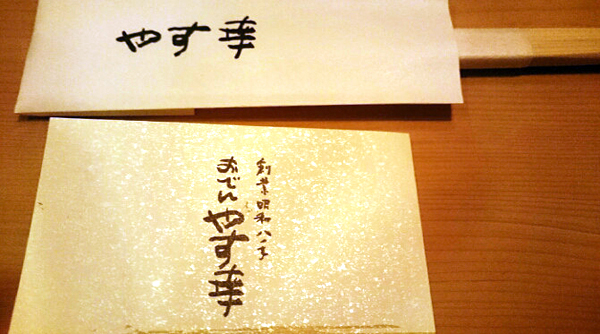 やす幸
創業昭和八年
おでん やす幸